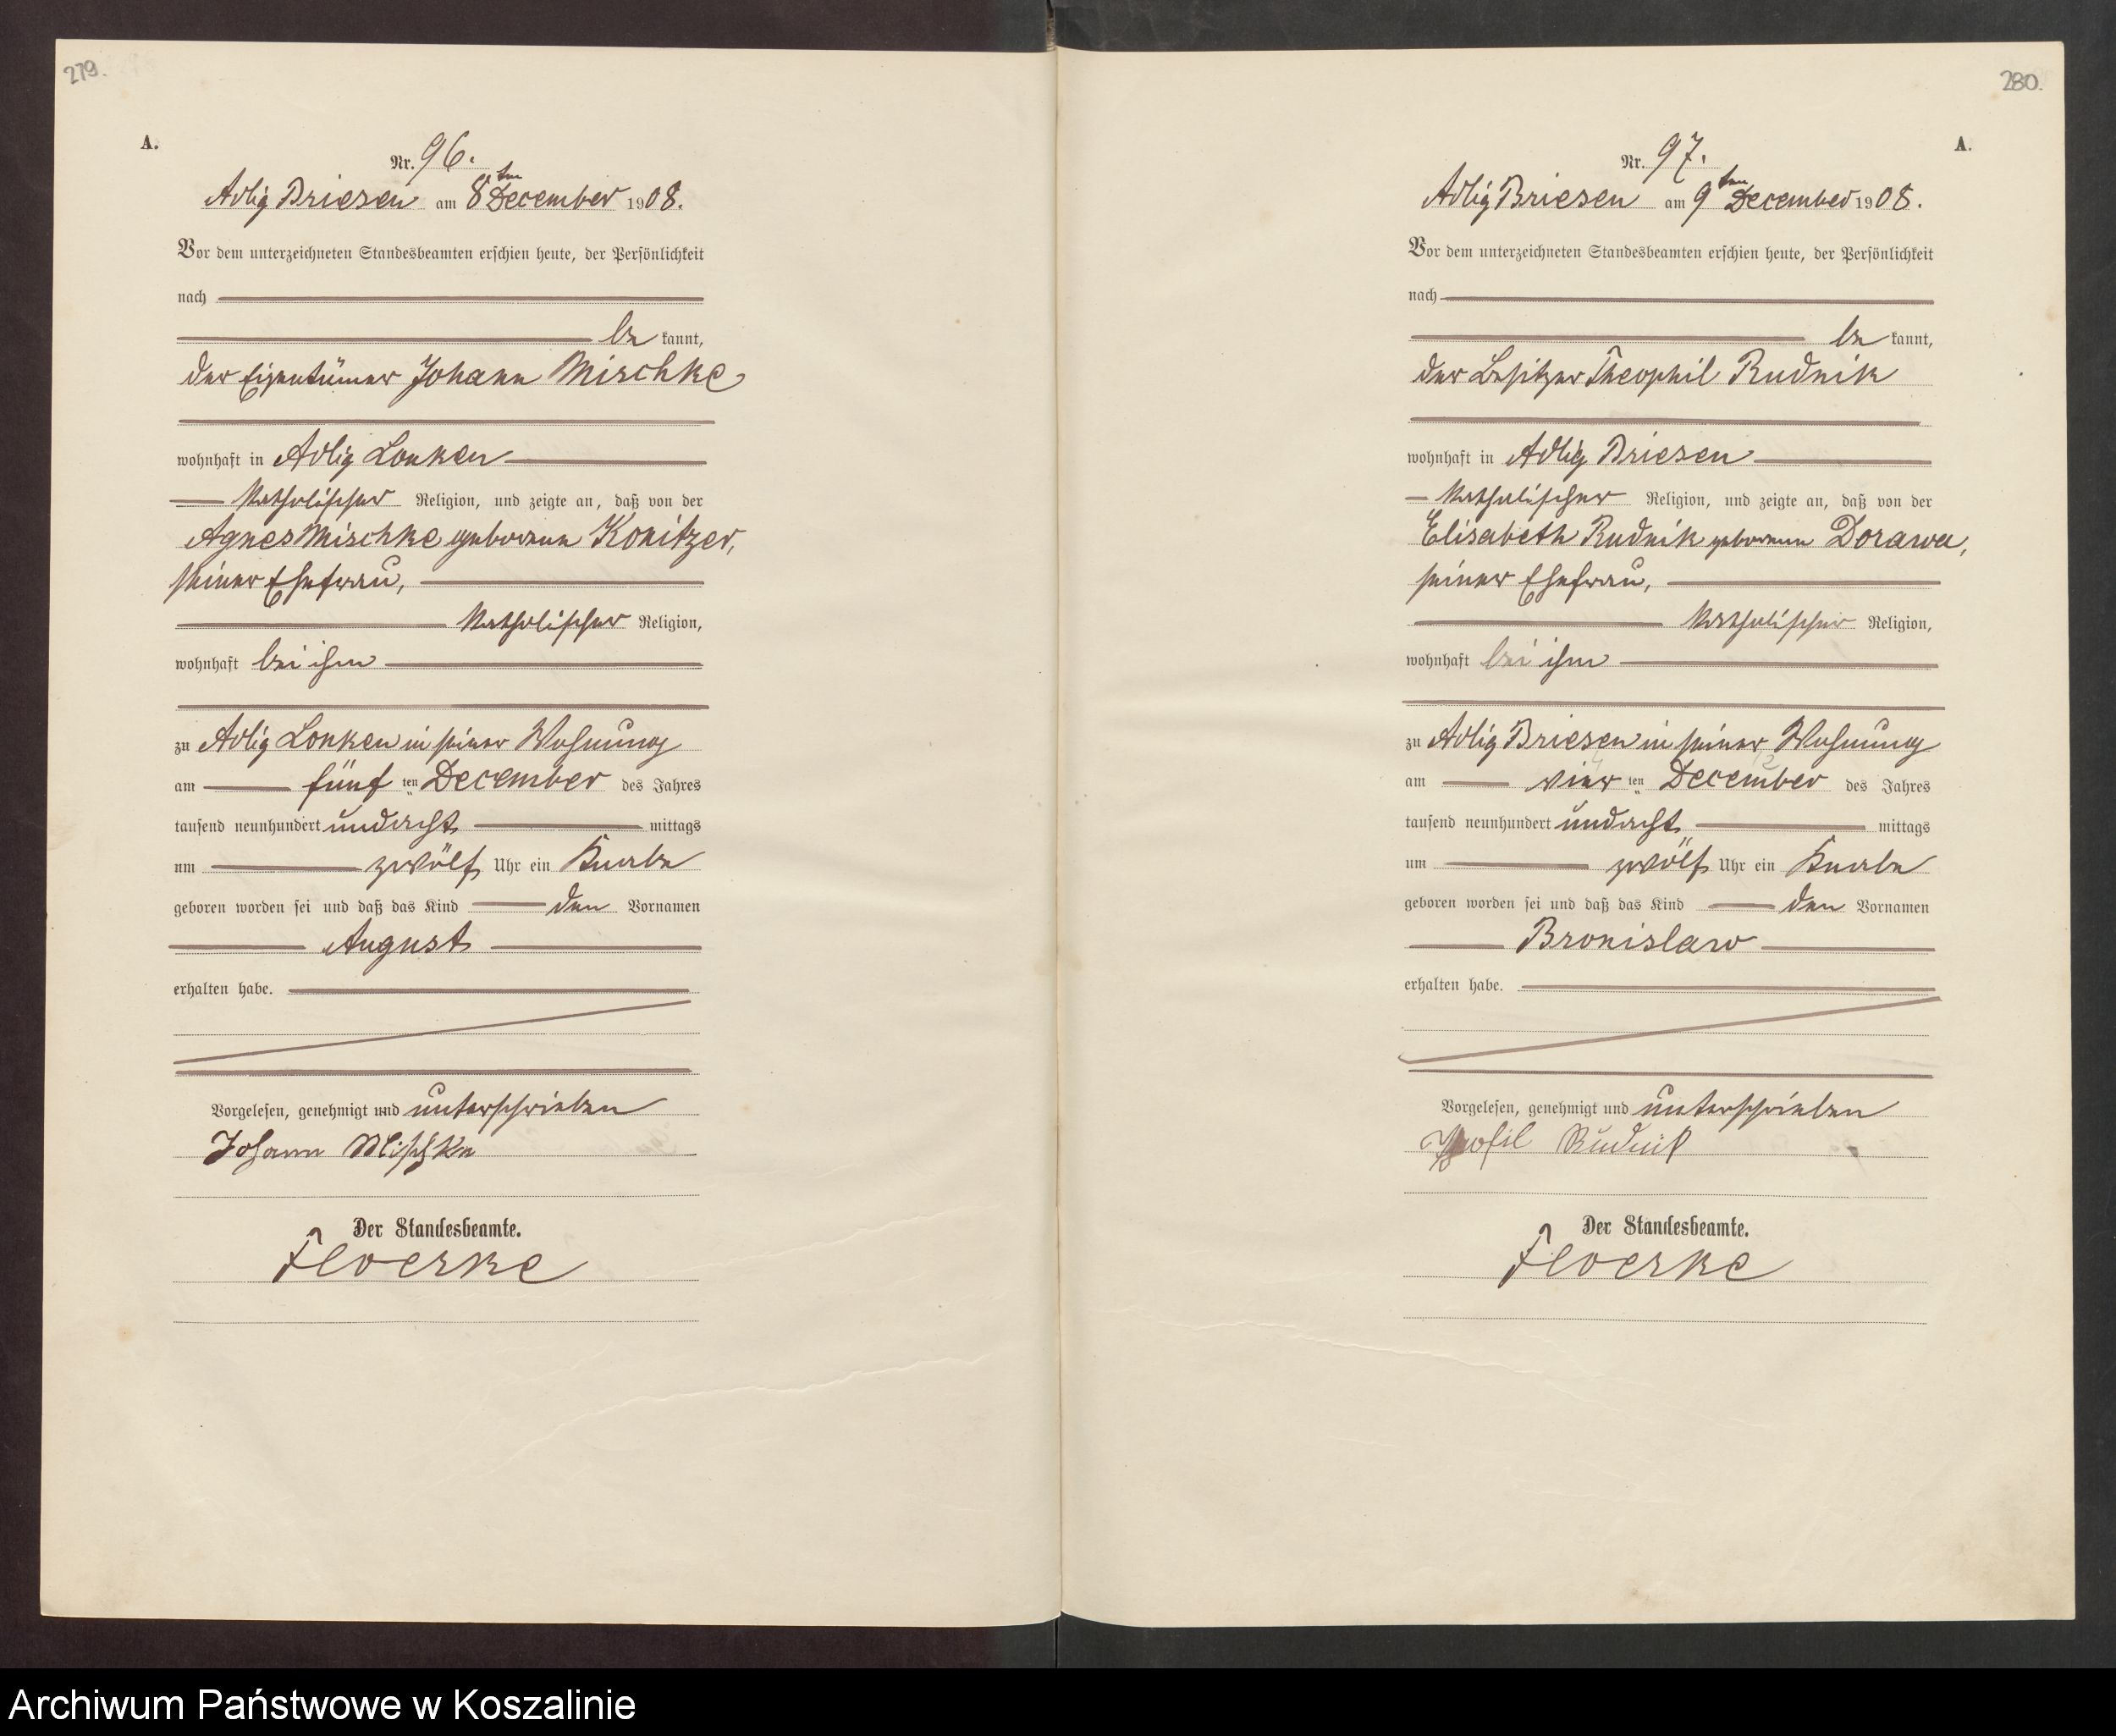 279.
A.
Nr. 96.
Adlig Briesen am 8ten December 1908.
Vor dem unterzeichneten Standesbeamten erschien heute, der Persönlichkeit
nach
be kannt,
der Eigentümer Johann Mischke
wohnhaft in Adlig Lonken
katholischer Religion, und zeigte an, daß von der
Agnes Mischke geborenen Konitzer,
seiner Ehefrau,
katholischer Religion,
wohnhaft bei ihm
zu Adlig Lonken in seiner Wohnung
am fünf ten December des Jahres
tausend neunhundert und acht mittags
um zwölf Uhr ein Knabe
geboren worden sei und daß das Kind den Vornamen
August
erhalten habe.
Vorgelesen, genehmigt und unterschrieben
Johann Mischke
Der Standesbeamte.
Floerke
280.
A.
Nr. 97.
Adlig Briesen am 9ten December 1908.
Vor dem unterzeichneten Standesbeamten erschien heute, der Persönlichkeit
nach
be kannt,
der Besitzer Theophil Rudnik
wohnhaft in Adlig Briesen
katholischer Religion, und zeigte an, daß von der
Elisabeth Rudnik geborenen Dorawa,
seiner Ehefrau,
katholischer Religion,
wohnhaft bei ihm
zu Adlig Briesen in seiner Wohnung
am vier ten December des Jahres
tausend neunhundert und acht mittags
um zwölf Uhr ein Knabe
geboren worden sei und daß das Kind den Vornamen
Bronislaw
erhalten habe.
Vorgelesen, genehmigt und unterschrieben
Rudnik
Der Standesbeamte.
Floerke
Archiwum Państwowe w Koszalinie